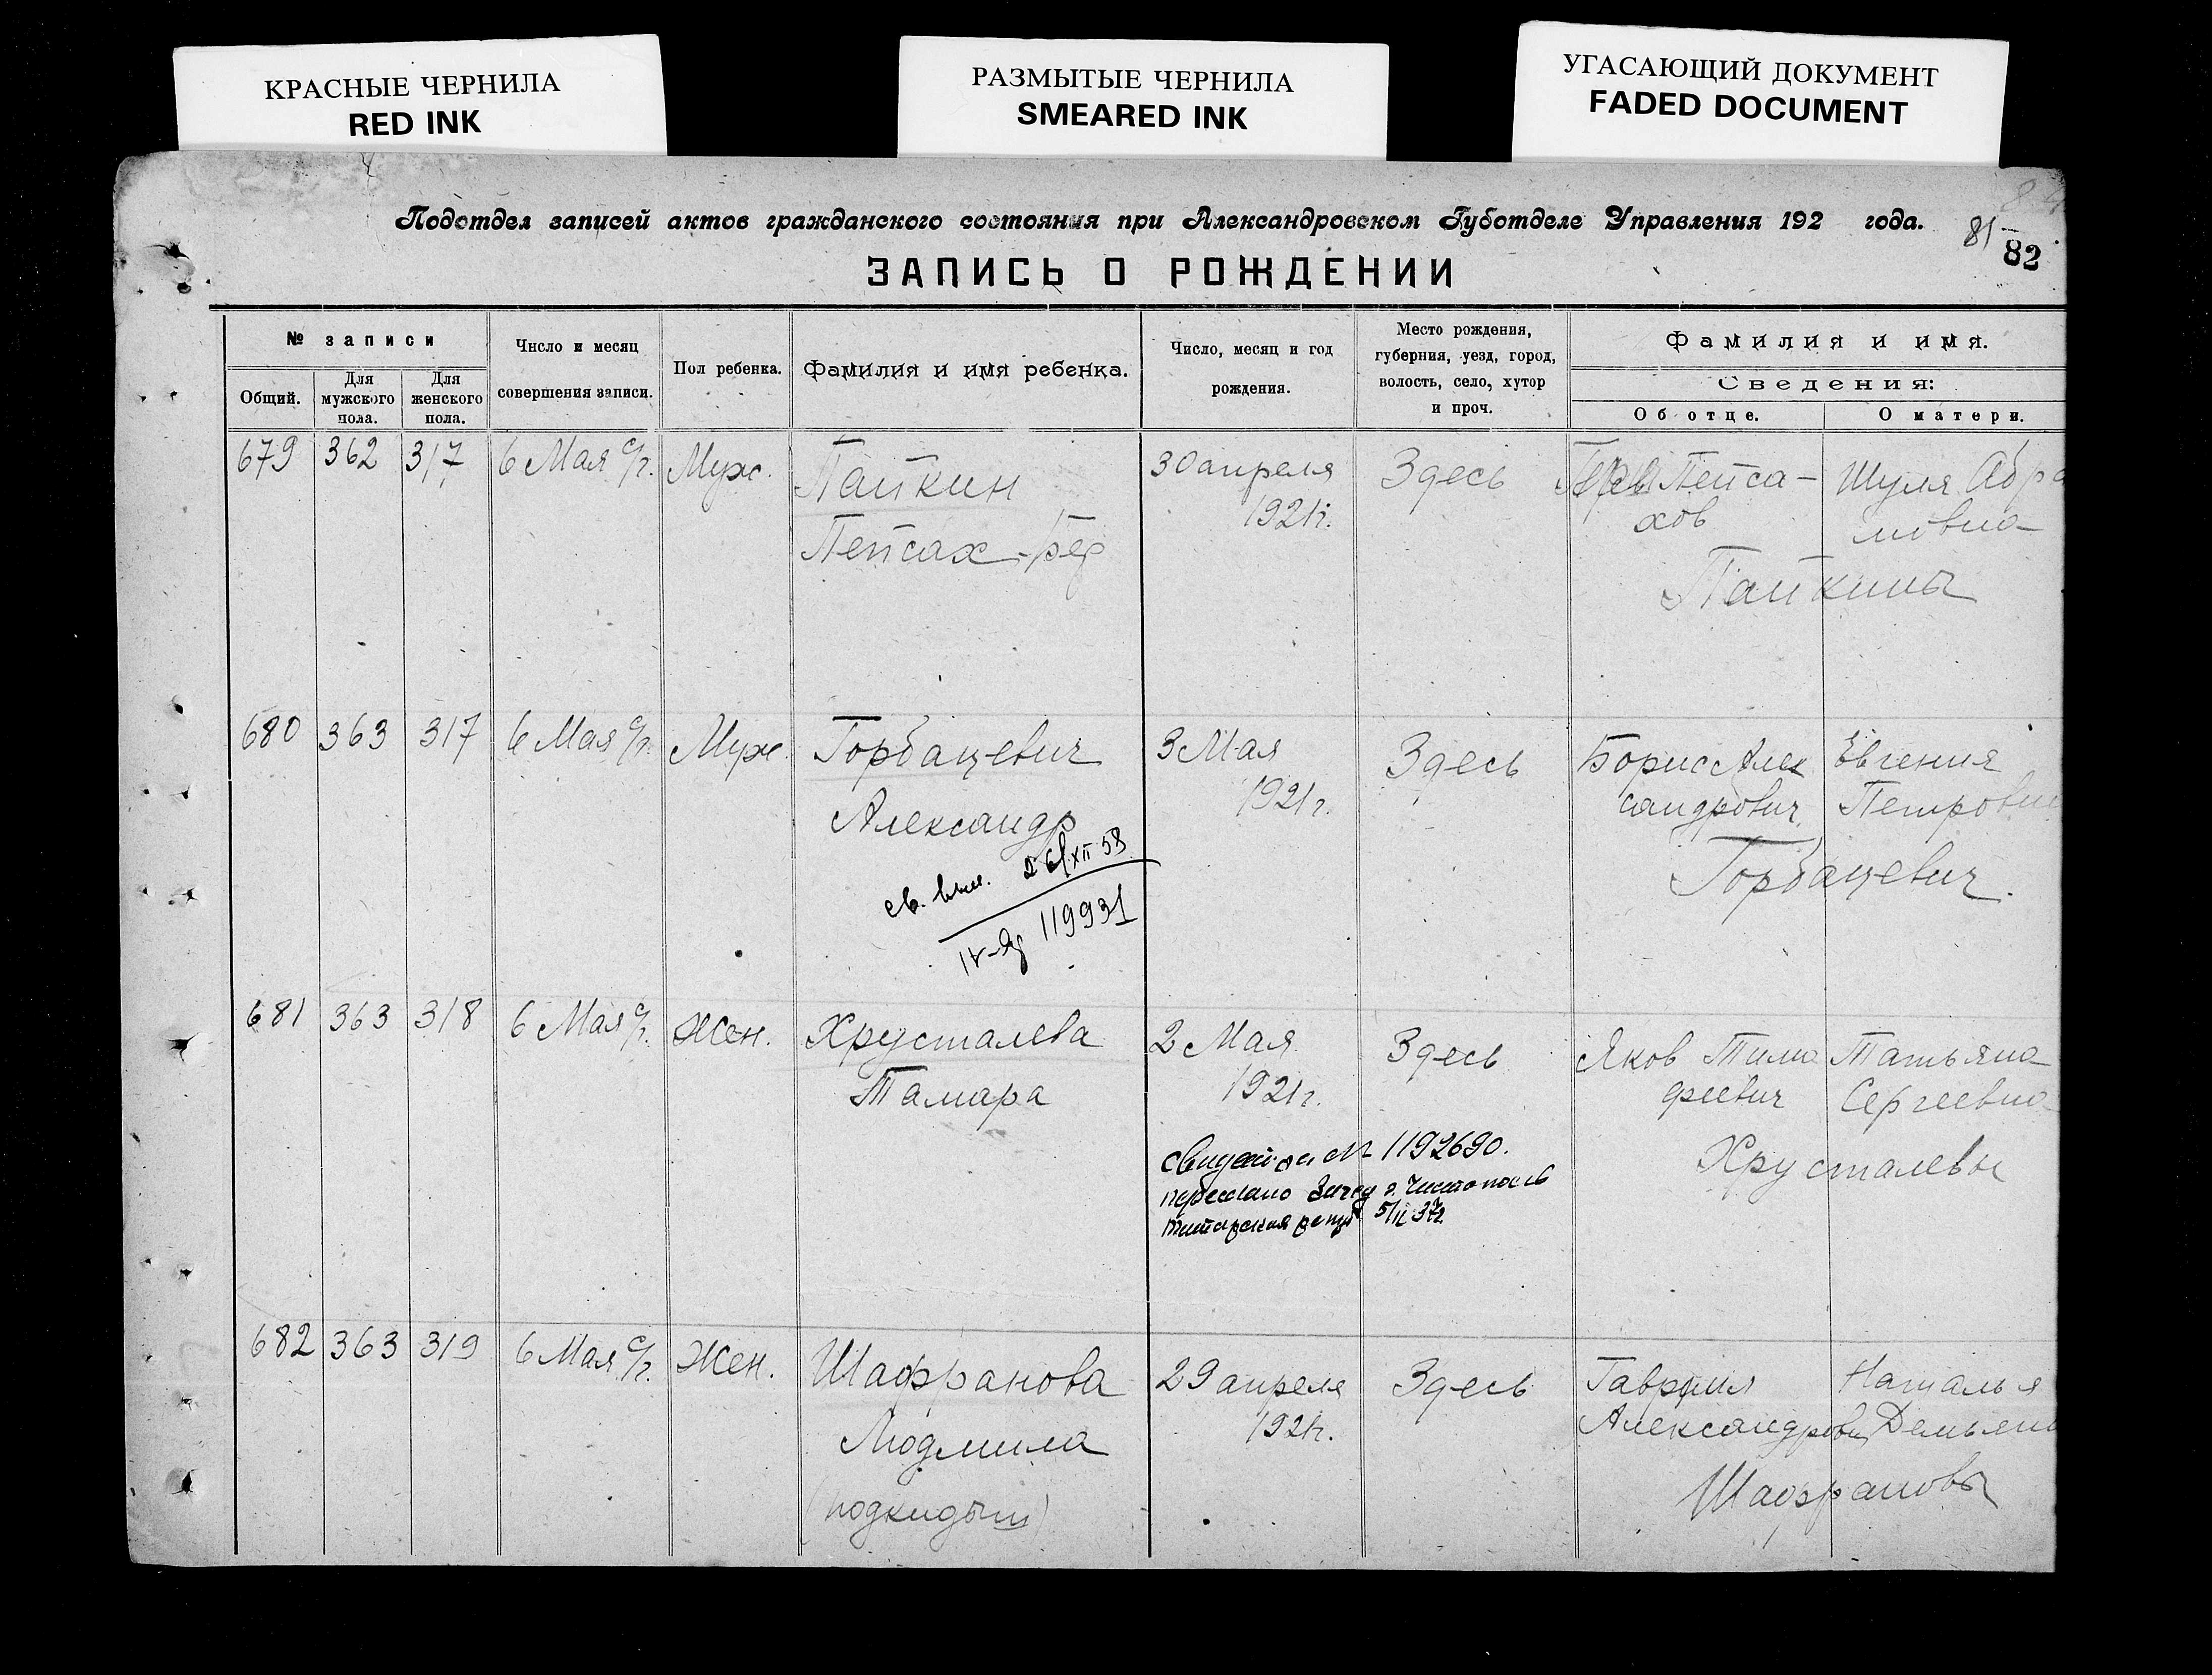 КРАСНЫЕ ЧЕРНИЛА
RED INK
РАЗМЫТЫЕ ЧЕРНИЛА
SMEARED INK
УГАСАЮЩИЙ ДОКУМЕНТ
FADED DOCUMENT
Подотдел записей актов гражданского состояния при Александровском Губотделе Управления 192 года.
81
82
ЗАПИСЬ О РОЖДЕНИИ
№ записи
Общий.
Для мужского пола.
Для женского пола.
Число и месяц совершения записи.
Пол ребенка.
Фамилия и имя ребенка.
Число, месяц и год рождения.
Место рождения, губерния, уезд, город, волость, село, хутор и проч.
Фамилия и имя.
Сведения:
Об отце.
О матери.
679 362 317 6 Мая с/г. Муж. Пайкин 30 апреля Здесь Пейса- Шуля Абра
1921г. хов мовна
Пейсах-
Пайкины
680 363 317 6 Мая с/г. Муж. Горбацевич 3 Мая Здесь Борис Алек Евгения
1921г. сандрович Петровн
Александр
Горбацевич.
св. выд. 26/XII 58
119931
681 363 318 6 Мая с/г. Жен. Хрусталева 2 Мая Здесь Яков Тимо Татьяна
Тамара 1921г. феевич Сергеевна
Хрусталевы
№ 1192690.
г. Чистополь
Татарская 5/II 37г
682 363 319 6 Мая с/г. Жен. Шафранова 29 апреля Здесь Гавриил Наталья
Людмила 1921г. Александрович Демьян
Шафрановы
(подкидыш)